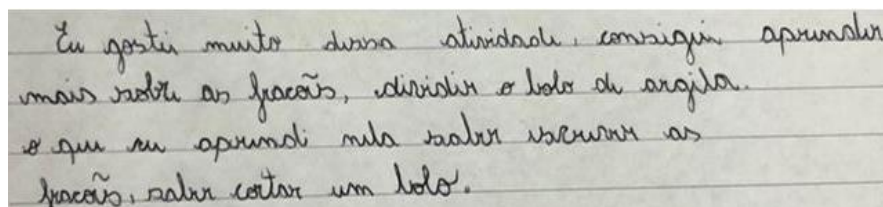 Eu gostei muito dessa atividade, consegui aprender
mais sobre as fracoẽs, dividir o bolo de argila.
o que eu aprendi nela saber escrever as
fracoẽs, saber cortar um bolo.